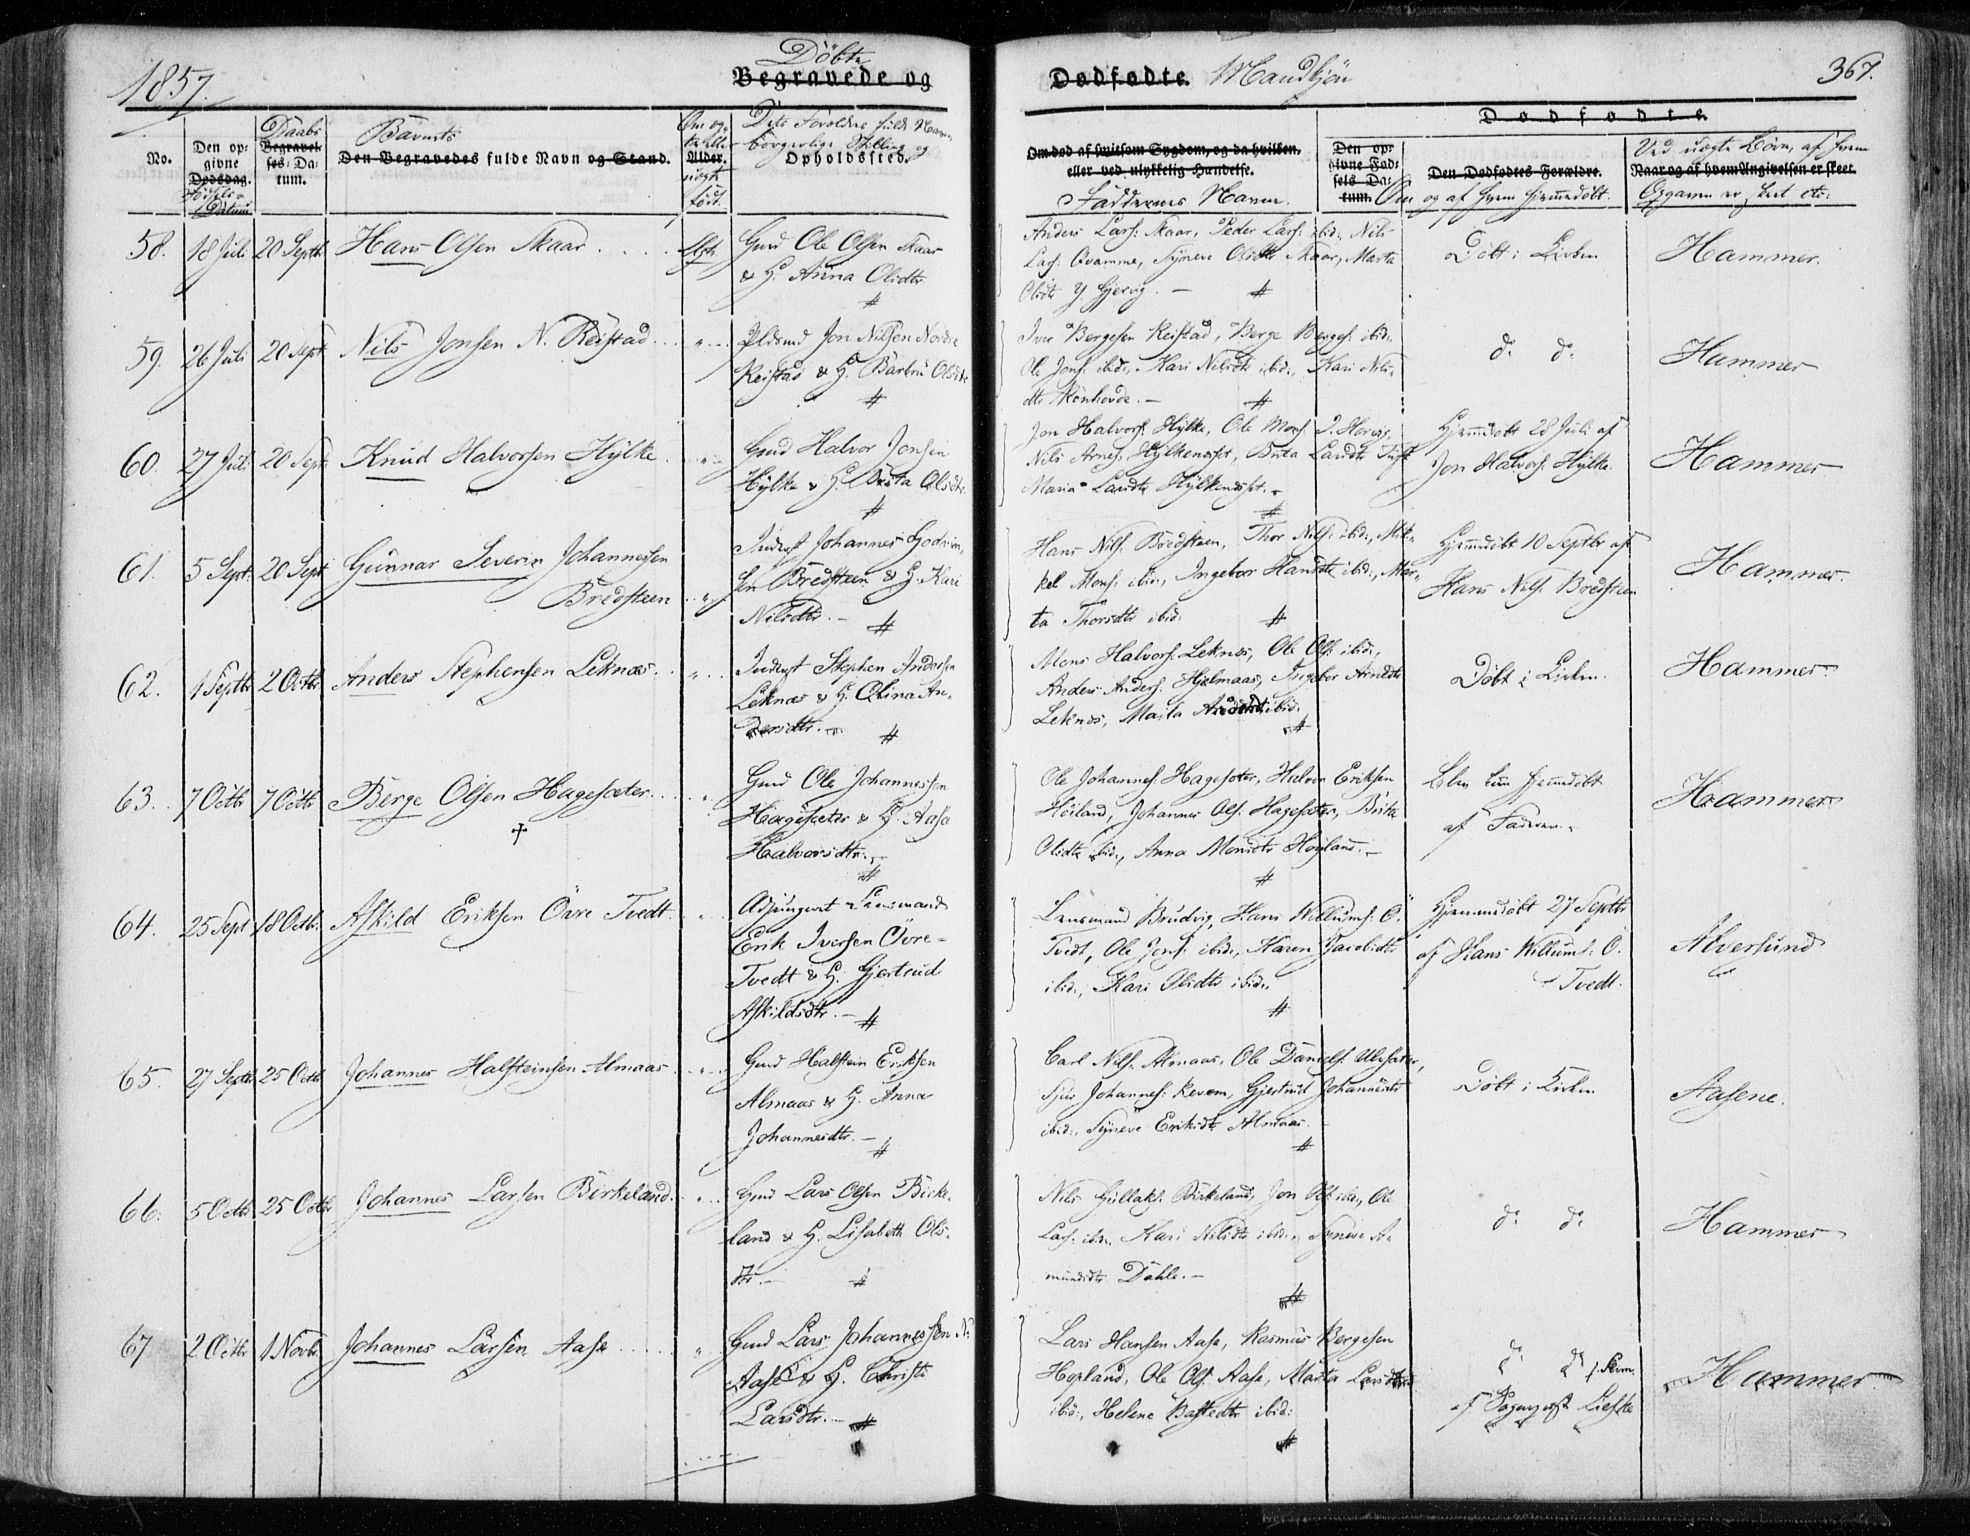 1857.
Döbte
Begravede og
Dødfødte. Mandkjön
367.
No.
Den op-
givne
Dødsdag.
Födsels-
Datum
Daabs
Begravel-
ses: Da-
tum.
Barnets
Den Begravedes fulde Navn og Stand.
Om og-
Alder.
uægte
født.
Dets Forældres fulde Navn,
borgerlige Stilling og
Opholdssted.
Om død af smitsom Sygdom, og da hvilken,
eller ved ulykkelig Hændelse.
Faddernes Navne.
Dødfødte.
Den op-
givne Fød-
sels Da-
tum.
Den Dødfødtes Forældre.
Om og af hvem hjemmedöbt.
Ved uægte Börn, af hvem
Naar og af hvem Angivelsen er skeet.
Opgaven er skeet etc:
58. 18 Juli 20 Septbr Hans Olsen Skaar Ægte Gmd Ole Olsen Skaar
& H. Anna Olsdtr
Anders Lars: Skaar, Peder Lars: ibid:, Nils
Lars: Qvamme, Synneve Olsdtr Skaar, Marta
Olsdtr Y Gjervig. —
Döbt i Kirken
Hammer.
59. 26 Juli 20 Sept Nils Jonsen N. Reistad Pldsmd Jon Nilsen Nordre
Reistad & H. Barbru Olsdtr
Iver Bergesen Reistad, Berge Berges: ibid:,
Ole Jons: ibid:, Kari Nilsdtr ibid:, Kari Nils-
dtr Skönhovde. —
do do
Hammer
60. 27 Juli 20 Sept Knud Halvorsen Hÿlke Gmd Halvor Jonsen
Hÿlke & H. Brita Olsdtr.
Jon Halvors: Hÿlke, Ole Mons:
Nils Arnes: Hÿlkeneset, Brita Larsdtr
Maria Larsdtr Hÿlkeneset.
Hjemmdöbt 28 Juli af
Jon Halvors: Hÿlke.
Hammer
61. 5 Sept. 20 Sept Gunnar Severin Johannessen
Bredsteen
Inderst Johannes
sen Bredsteen & H. Kari
Nilsdtr. —
Hans Nils: Bredsteen, Thor Nils: ibid:, Mik-
kel Mons: ibid:, Ingebor Hansdtr ibid:, Mar-
ta Thorsdtr ibid:
Hjemmdöbt 10 Septbr af
Hans Nils: Bredsteen
Hammer.
62. 1 Septbr 2 Octbr Anders Stephensen Leknæs. Inderst Stephen Andersen
Leknæs & H. Olina An-
dersdtr. —
Mons Halvors: Leknæs, Ole Ols: ibid:,
Anders Anders: Hjelmaas, Ingebor Arnedtr
Leknæs, Marta ibid:
Döbt i Kirken.
Hammer
63. 7 Octbr 7 Octbr Berge Olsen Hagesæter. Gmd Ole Johannessen
Hagesæter & H. Aasa
Halvorsdtr. —
Ole Johannes: Hagesæter, Halvor Eriksen
Höiland, Johannes Ols: Hagesæter, Brita
Olsdtr ibid:, Anna Monsdtr Höyland. —
Blev kun hjemmdöbt
af Faderen. —
Hammer
64. 25 Sept 18 Octbr. Askild Eriksen Övre Tvedt Adjungeret Lensmand
Erik Iversen Övre-
Tvedt & H. Gjertrud
Askildsdtr. —
Lensmand Brudvig, Hans Willums: Ö.
Tvedt, Ole Jons: ibid:, Karen Jacobsdtr
ibid:, Kari Olsdtr ibid:,
Hjemmdöbt 27 Septbr
af Hans Willums: Ö.
Tvedt.
Alversund
65. 27 Septbr 25 Octbr Johannes Halsteinsen Almaas Gmd Halstein Eriksen
Almaas & H. Anna
Johannesdtr. —
Carl Nils: Almaas, Ole Daniels:
Sjur Johannes: Revem, Gjertrud Johannesdtr
ibid:, Synneve Eriksdtr Almaas.
Döbt i Kirken
Aasene.
66. 5 Octbr 25 Octbr Johannes Larsen Birkeland. Gmd Lars Olsen Birke-
land & H. Lisabeth Ols-
dtr. —
Nils Gullaks: Birkeland, Jon Ols: ibid:, Ole
Lars: ibid:, Kari Nilsdtr ibid:, Synneve A-
mundsdtr Dahle. —
do do
Hammer
67 2 Octbr 1 Novbr. Johannes Larsen Aase Gmd Lars Johannessen N.
Aase & H. Christi
Larsdtr. —
Lars Hansen Aase, Rasmus Bergesen
Hopland, Ole Ols: Aase, Marta Larsdtr
ibid:, Helene Bastedtr ibid:
do do
af Sogneprest
Hammer